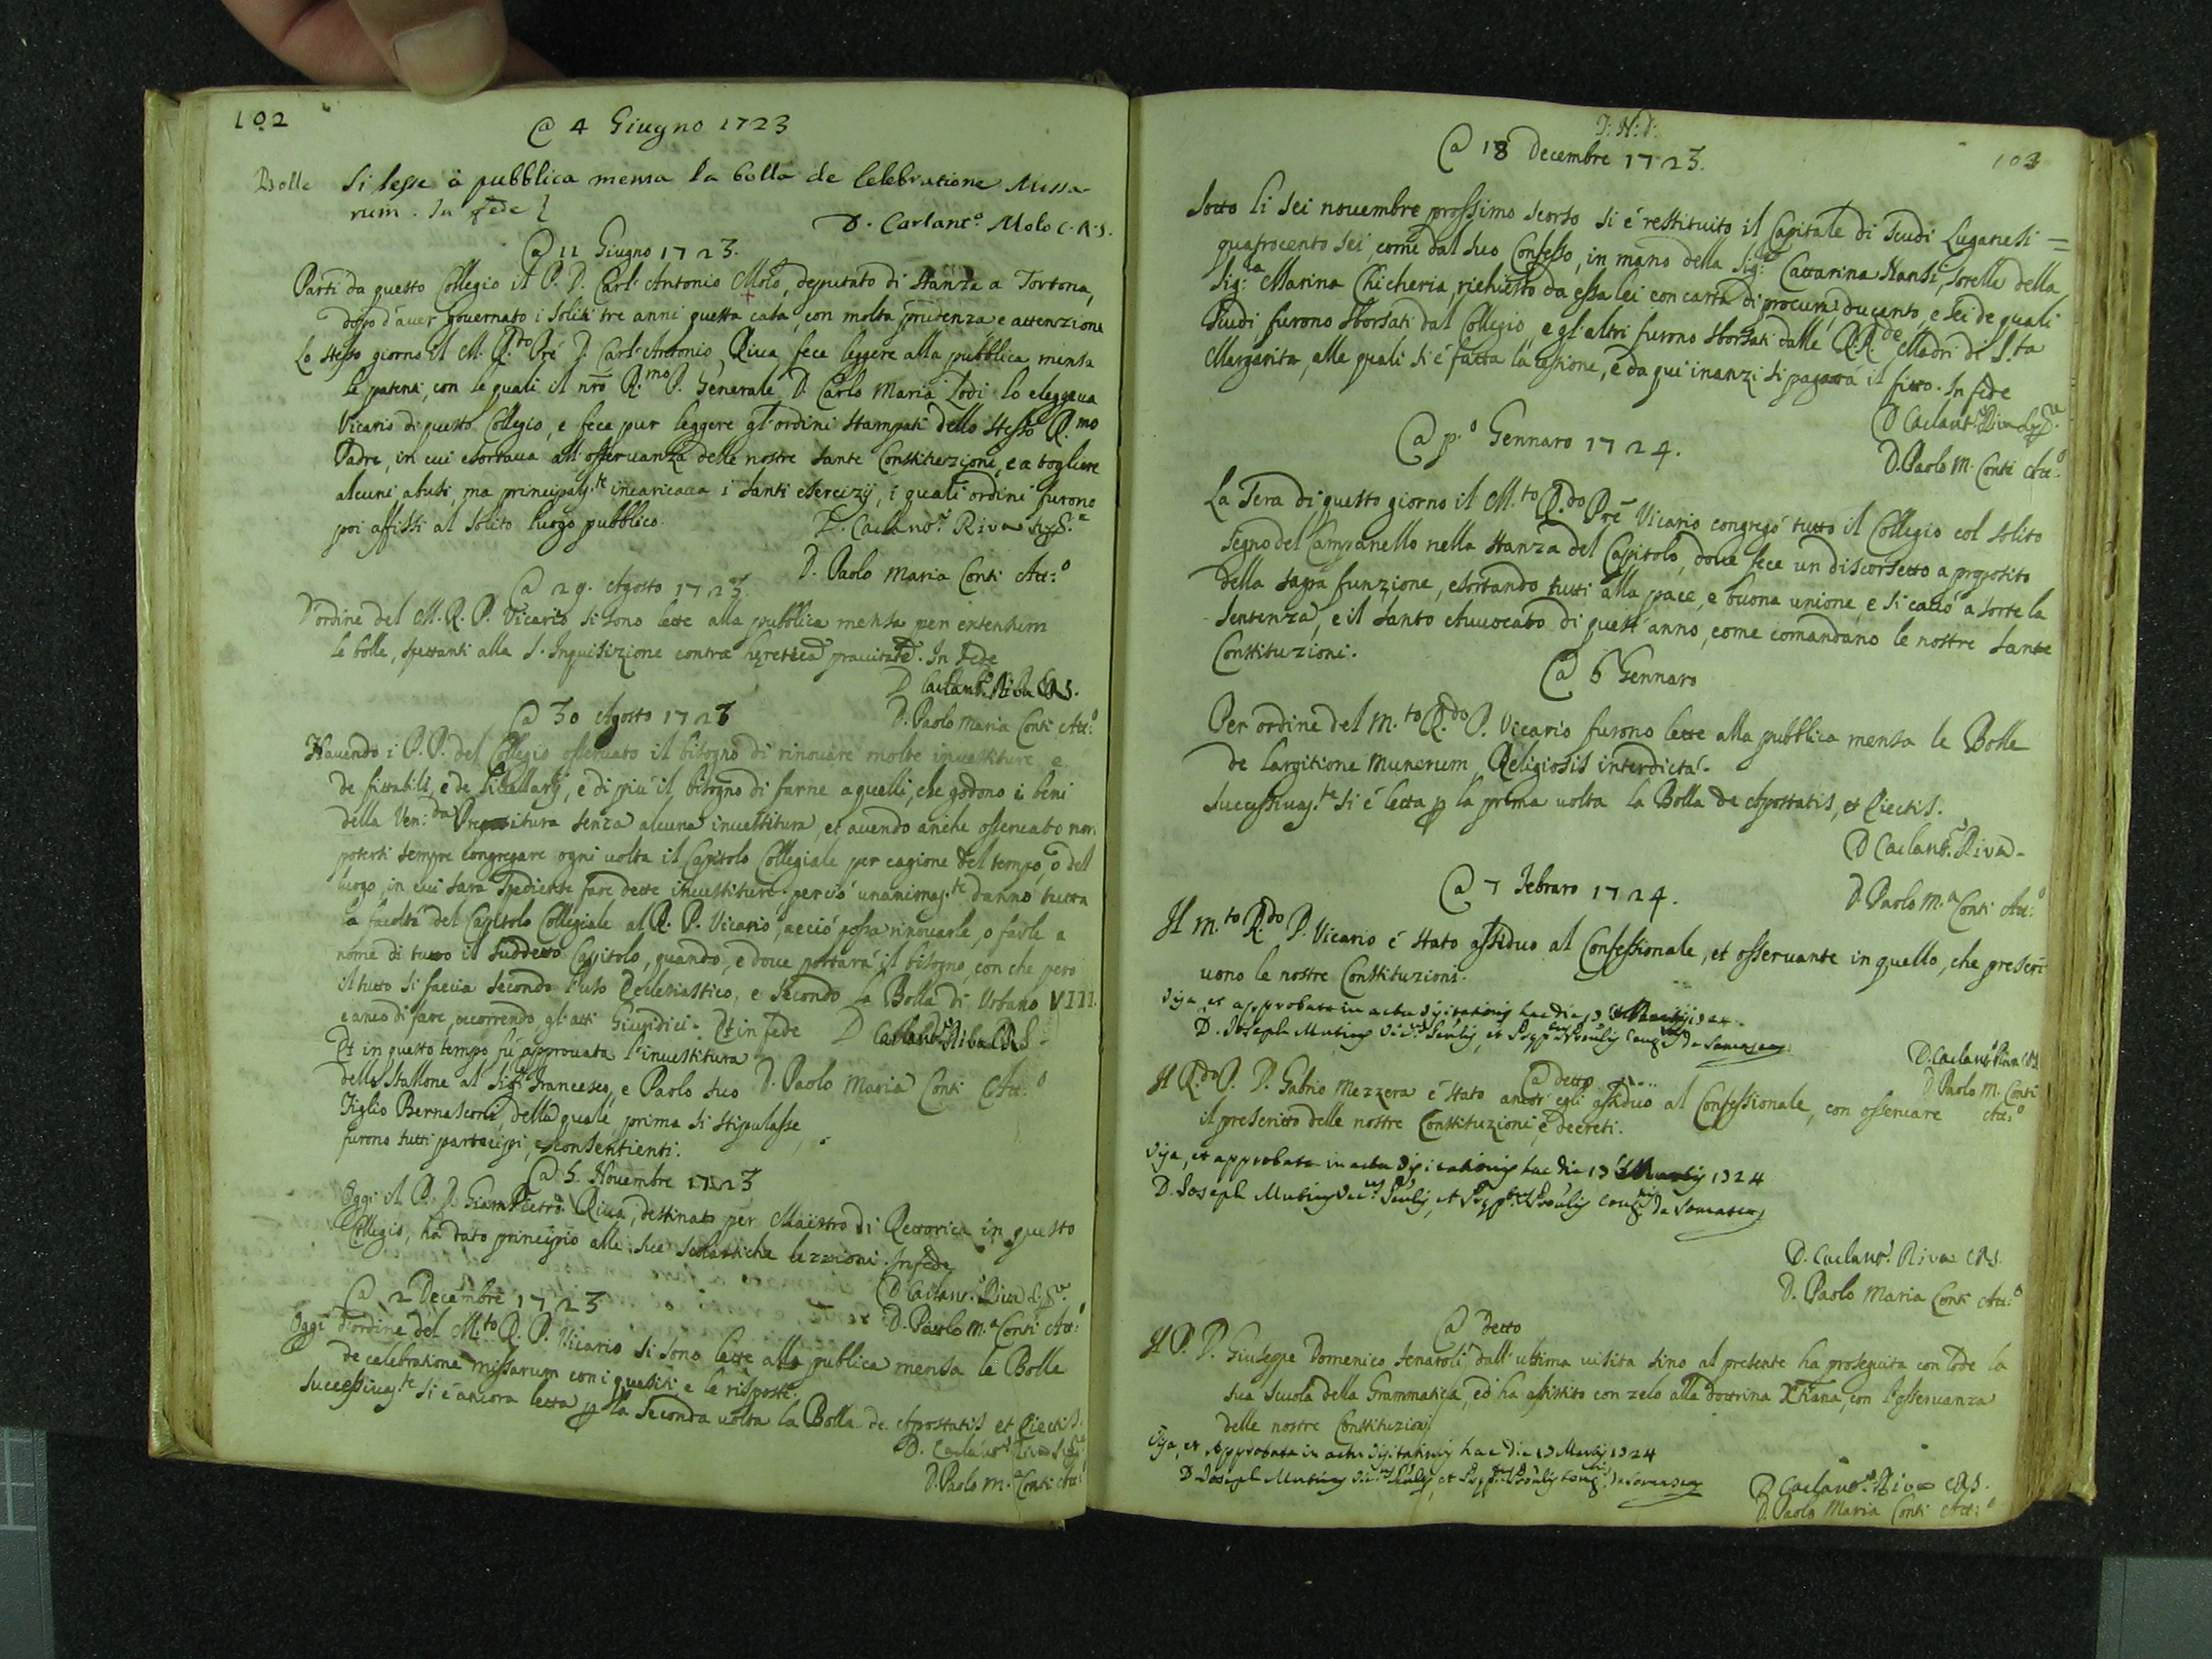 102
@ 4 Giugno 1723
Bolle Si lesse à pubblica mensa la bolla de Celebratione Missa-
rum. In fede
D. Carlant.o Molo C.R.S.
@ 11 Giugno 1723.
Partì da questo Collegio il P. D. Carl' Antonio Molo, deputato di stanza a Tortona,
dopo d'aver governato i soliti tre anni questa casa, con molta prudenza e attenzione
Lo stesso giorno il M. R.do Pre D. Carl' Antonio Riva fece leggere alla pubblica mensa
le patenti, con le quali il nro R.mo P. Generale D. Carlo Maria Lodi lo eleggeva
Vicario di questo Collegio, e fece pur leggere gl'ordini stampati dello stesso R.mo
Padre, in cui esortava all'osservanza delle nostre sante Constituzioni, e a togliere
alcuni abusi, ma principalm.te incaricava i santi esercizij, i quali ordini furono
poi affissi al solito luogo pubblico.
D. Carlant.o Riva
D. Paolo Maria Conti Att.o
@ 29. Agosto 1723.
D'ordine del M. R. P. Vicario si sono lette alla pubblica mensa per extensum
le bolle, spettanti alla S. Inquisizione contra In fede
D. Carlant.o Riva CRS.
D. Paolo Maria Conti Att.o
@ 30 Agosto 1723
Havendo i P.P. del Collegio osservato il bisogno di rinovare molte investiture e
de fittabili, e de Livellarij, e di più il bisogno di farne a quelli, che godono i beni
della Ven.da Prepositura senza alcuna investitura, et avendo anche osservato non
potersi sempre congregare ogni volta il Capitolo Collegiale per cagione del tempo, o del
luogo, in cui sarà spediente fare dette investiture; perciò unanimam.te danno tutta
la facoltà del Capitolo Collegiale al R. P. Vicario, acciò possa rinovarle, o farle a
nome di tutto il suddetto Capitolo, quando, e dove portarà il bisogno, con che però
il tutto si faccia secondo l'uso Ecclesiastico, e secondo la Bolla di Urbano VIII.
e anco di fare, occorrendo gl'atti Giuridici. Et in fede D. Carlant.o Riva CRS.
Et in questo tempo fù approvata l'investitura
dello Stallone al Sig.r Francesco, e Paolo suo D. Paolo Maria Conti Att.o
Figlio Bernasconi, della quale, prima si stipulasse,
furono tutti partecipi, e consentienti.
@ 5. Novembre 1723
Oggi il P. D. Giam Pietro Riva, destinato per Maestro di Rettorica in questo
Collegio, ha dato principio alle sue scolastiche lezzioni. In fede
D. Carlant.o Riva
D. Paolo M.a Conti Att.o
@ 2 Decembre 1723
Oggi d'ordine del M.to R. P. Vicario si sono lette alla publica mensa le Bolle
de celebratione missarum con i quesiti e le risposte.
Successivam.te si è ancora letta p la seconda volta la Bolla de Apostatis et Eiectis.
D. Carlant.o Riva
D. Paolo M.a Conti Att.o
J: N: D:
103
@ 18 Decembre 1723.
Sotto li sei novembre prossimo scorso si è restituito il Capitale di scudi Luganesi =
quatrocento sei, come dal suo Confesso, in mano della Sig.ra Cattarina Nansi, sorella della
Sig.ra Marina Chicheria, richiesto da essa lei con carta di procura, ducento, e sei de quali
scudi furono sborsati dal Collegio, e gl'altri furono sborsati dalle R.R.de Madri di S.ta
Margarita, alle quali si è fatta la cessione, e da qui inanzi si pagarà il fitto. In fede
D Carlant.o Riva
D. Paolo M. Conti Att.o
@ p.o Gennaro 1724.
La Sera di questo giorno il M.to R.do Pre Vicario congregò tutto il Collegio col solito
segno del Campanello nella stanza del Capitolo, dove fece un discorsetto a proposito
della sagra funzione, esortando tutti alla pace, e buona unione, e si cavò a sorte la
Sentenza, e il santo Avvocato di quest'anno, come comandano le nostre sante
Constituzioni.
@ 6 Gennaro
Per ordine del M.to R.do P. Vicario furono lette alla pubblica mensa le Bolle
de largitione munerum Religiosis interdicta.
Successivam.te si è letta p la prima volta la Bolla de Apostatis, et Eiectis.
D Carlant.o Riva
D. Paolo M.a Conti Att.o
@ 7 Febraro 1724.
Il M.to R.do P. Vicario è stato assiduo al Confessionale, et osservante in quello, che prescri
vono le nostre Constituzioni.
Visa, et approbata in actu visitationis hac die 13 Martij 1724.
D. Joseph Mutius da Somascha
D. Carlant.o Riva CRS.
D. Paolo M. Conti
Att.o
@ detto
Il R.do P. D. Gabrio Mezzera è stato ancor egli assiduo al Confessionale, con osservare
il prescritto delle nostre Constituzioni e decreti.
Visa, et approbata in actu visitationis hac die 13 Martij 1724
D. Joseph Mutius da Somascha
D. Carlant.o Riva CRS.
D. Paolo Maria Conti Att.o
@ detto
Il P. D. Giuseppe Domenico Senaroli dall'ultima visita sino al presente ha proseguita con lode la
sua scuola della Grammatica, ed ha assistito con zelo alla dottrina Xtiana, con l'osservanza
delle nostre Constituzioni
Visa, et Approbata in actu visitationis hac die 13 Martij 1724
D. Joseph Mutius da Somascha
D. Carlant.o Riva CRS.
D. Paolo Maria Conti Att.o